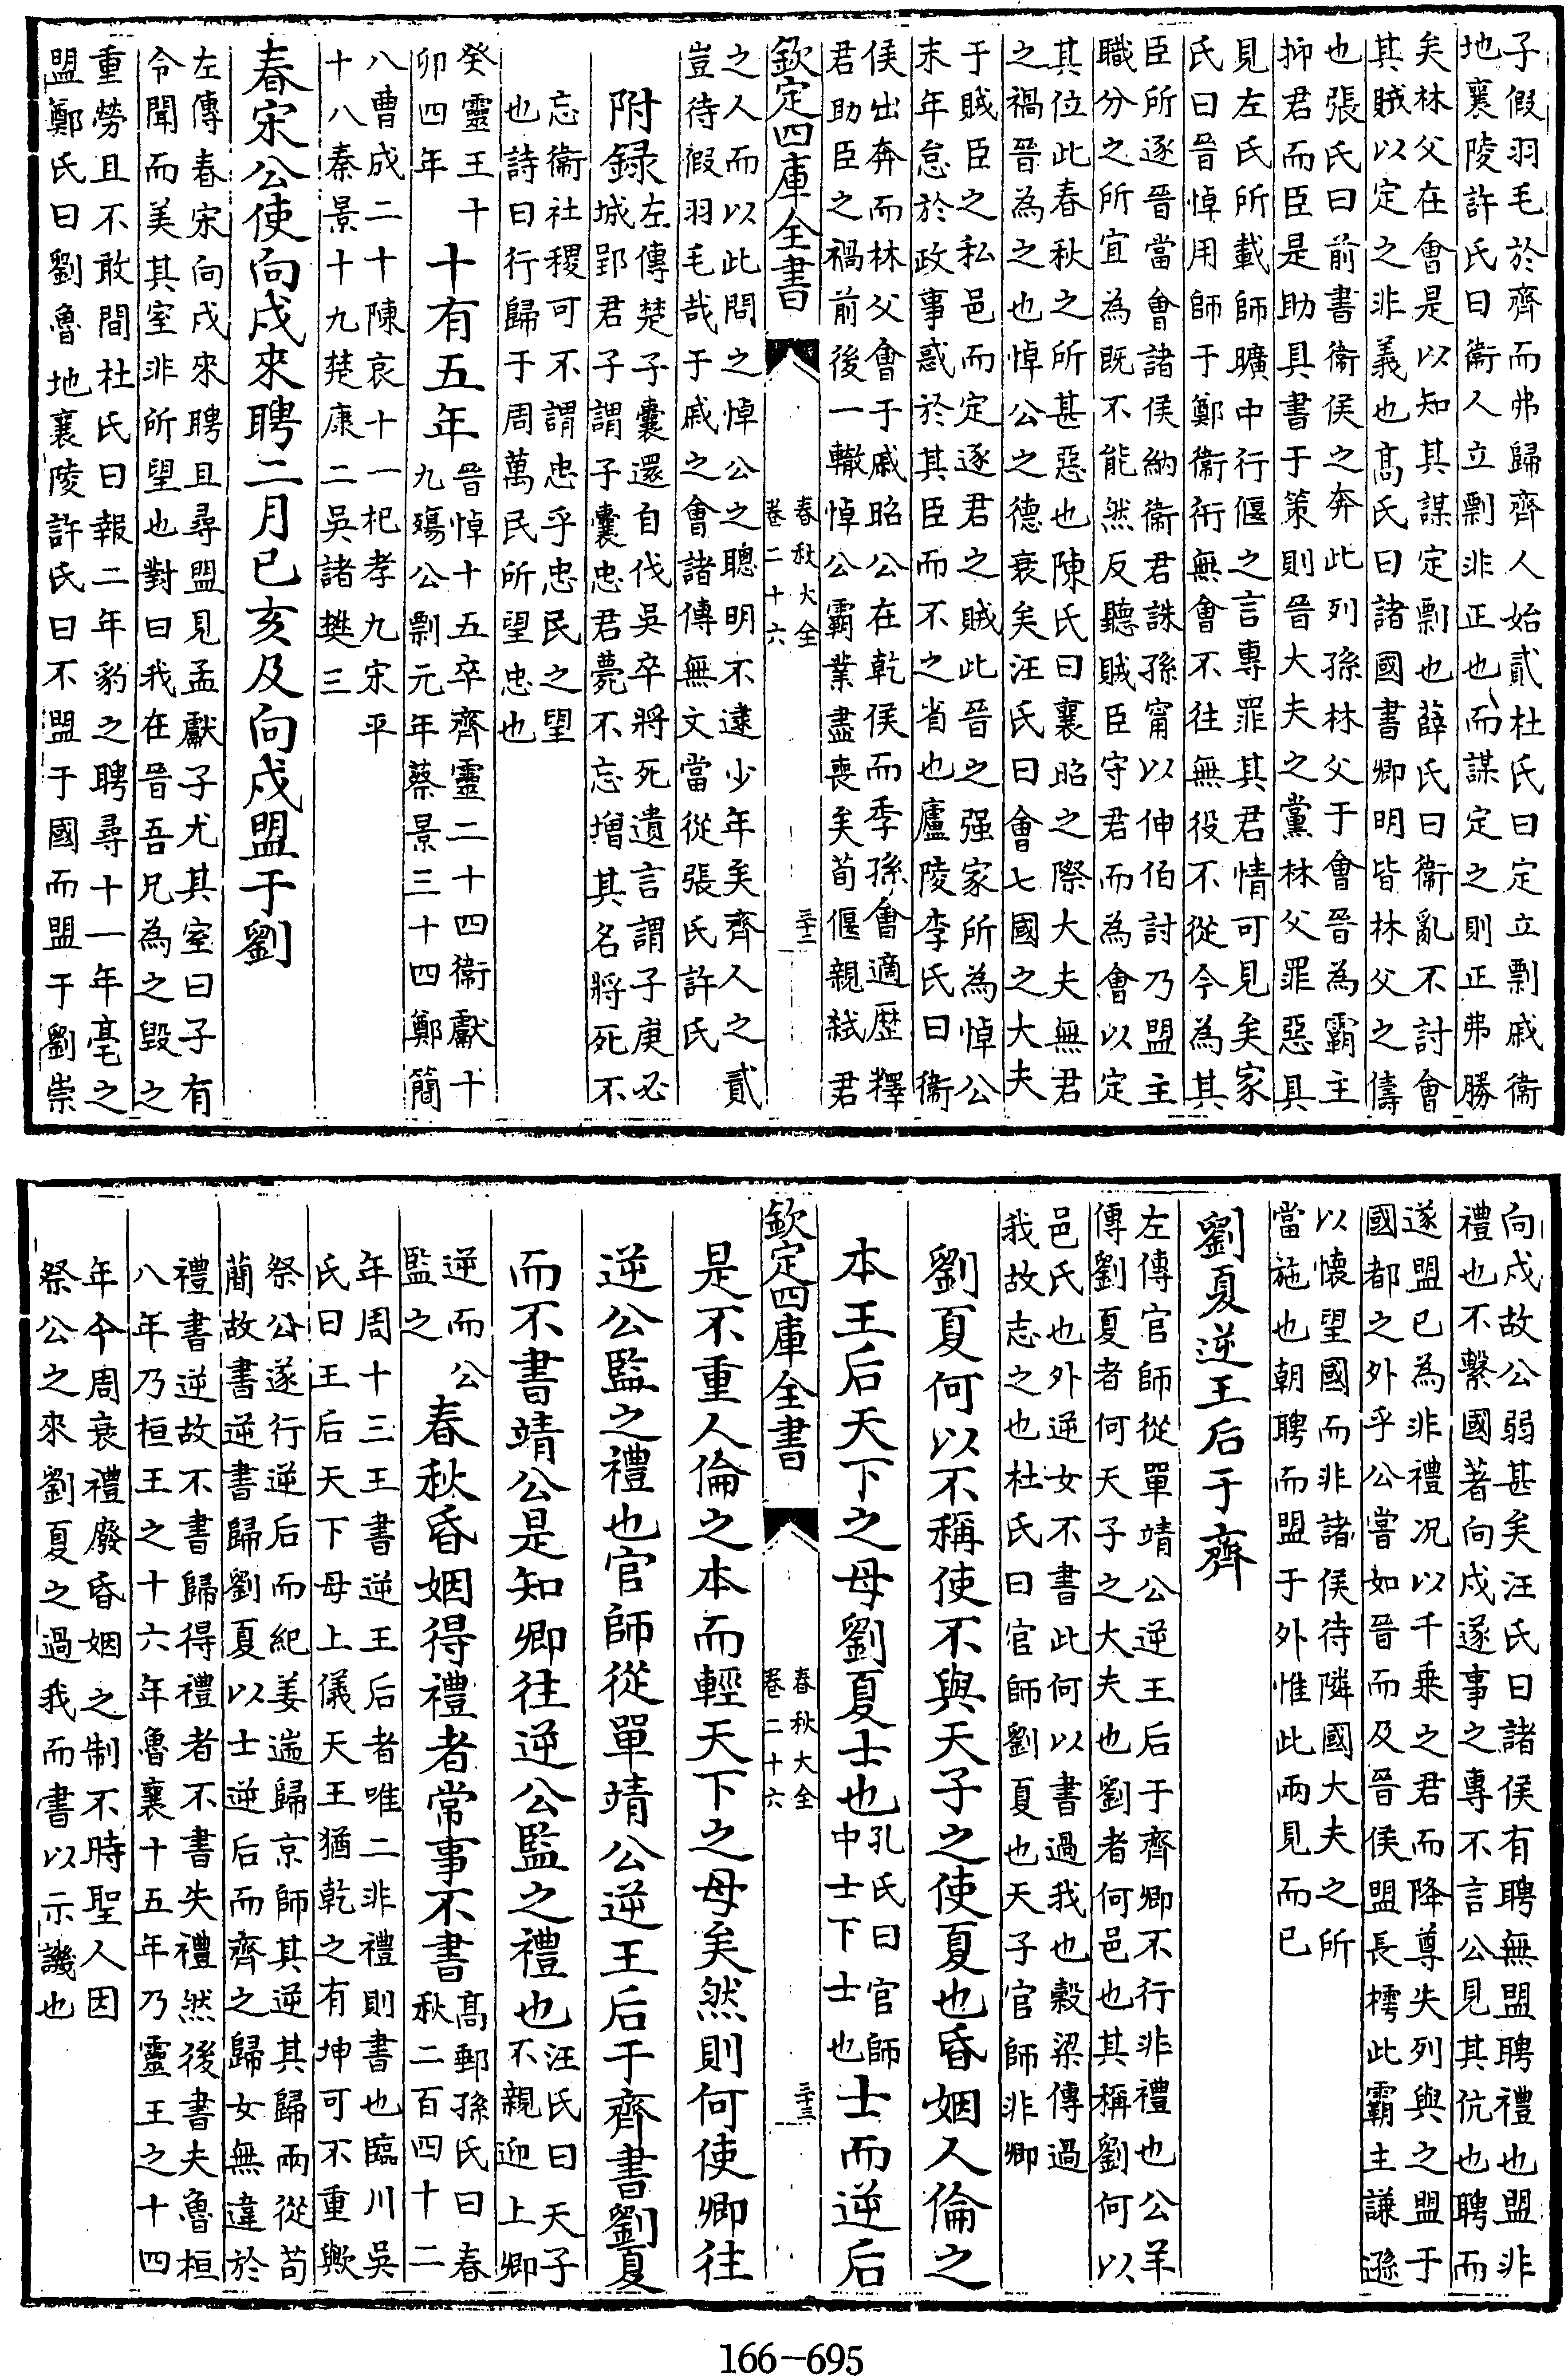 子假羽毛於齊而弗歸齊人始貳杜氏曰定立剽戚衞
地襄陵許氏曰衞人立剽非正也而謀定之則正弗勝
矣林父在會是以知其謀定剽也薛氏曰衞亂不討會
其賊以定之非義也髙氏曰諸國書卿明皆林父之儔
也張氏曰前書衞侯之奔此列孫林父于會晉為霸主
抑君而臣是助具書于策則晉大夫之黨林父罪惡具
見左氏所載師曠中行偃之言專罪其君情可見矣家
氏曰晉悼用師于鄭衞衎無會不往無役不從今為其
臣所逐晉當會諸侯納衞君誅孫甯以伸伯討乃盟主
職分之所宜為既不能然反聽賊臣守君而為會以定
其位此春秋之所甚惡也陳氏曰襄昭之際大夫無君
之禍晉為之也悼公之德衰矣汪氏曰會七國之大夫
于賊臣之私邑而定逐君之賊此晉之强家所為悼公
末年怠於政事惑於其臣而不之省也廬陵李氏曰衞
侯出奔而林父會于戚昭公在乾侯而季孫會適歴釋
君助臣之禍前後一轍悼公霸業盡喪矣荀偃親弑君
欽定四庫全書
春秋大全
卷二十六
三十二
之人而以此問之悼公之聰明不逮少年矣齊人之貳
豈待假羽毛哉于戚之會諸傳無文當從張氏許氏
附録左傳楚子囊還自伐吳卒將死遺言謂子庚必
城郢君子謂子囊忠君薨不忘增其名將死不
忘衞社稷可不謂忠乎忠民之望
也詩曰行歸于周萬民所望忠也
癸靈王十
卯四年
十有五年
晉悼十五卒齊靈二十四衞獻十
九殤公剽元年蔡景三十四鄭簡
八曹成二十陳哀十一杞孝九宋平
十八秦景十九楚康二吳諸樊三
春宋公使向戌來聘二月已亥及向戌盟于劉
左傳春宋向戌來聘且尋盟見孟獻子尤其室曰子有
令聞而美其室非所望也對曰我在晉吾兄為之毀之
重勞且不敢間杜氏曰報二年豹之聘尋十一年亳之
盟鄭氏曰劉魯地襄陵許氏曰不盟于國而盟于劉崇
向戌故公弱甚矣汪氏曰諸侯有聘無盟聘禮也盟非
禮也不繫國著向戌遂事之專不言公見其伉也聘而
遂盟已為非禮况以千乗之君而降尊失列與之盟于
國都之外乎公嘗如晉而及晉侯盟長樗此霸主謙遜
以懷望國而非諸侯待隣國大夫之所
當施也朝聘而盟于外惟此兩見而已
劉夏逆王后于齊
左傳官師從單靖公逆王后于齊卿不行非禮也公羊
傳劉夏者何天子之大夫也劉者何邑也其稱劉何以
邑氏也外逆女不書此何以書過我也穀梁傳過
我故志之也杜氏曰官師劉夏也天子官師非卿
劉夏何以不稱使不與天子之使夏也昏姻人倫之
本王后天下之母劉夏士也
孔氏曰官師
中士下士也
士而逆后
欽定四庫全書
春秋大全
卷二十六
三十三
是不重人倫之本而輕天下之母矣然則何使卿往
逆公監之禮也官師從單靖公逆王后于齊書劉夏
而不書靖公是知卿往逆公監之禮也
汪氏曰天子
不親迎上卿
逆而公
監之
春秋昏姻得禮者常事不書
髙郵孫氏曰春
秋二百四十二
年周十三王書逆王后者唯二非禮則書也臨川吳
氏曰王后天下母上儀天王猶乾之有坤可不重歟
祭公遂行逆后而紀姜耑歸京師其逆其歸兩從苟
簡故書逆書歸劉夏以士逆后而齊之歸女無違於
禮書逆故不書歸得禮者不書失禮然後書夫魯桓
八年乃桓王之十六年魯襄十五年乃靈王之十四
年今周衰禮廢昏姻之制不時聖人因
祭公之來劉夏之過我而書以示譏也
166-695